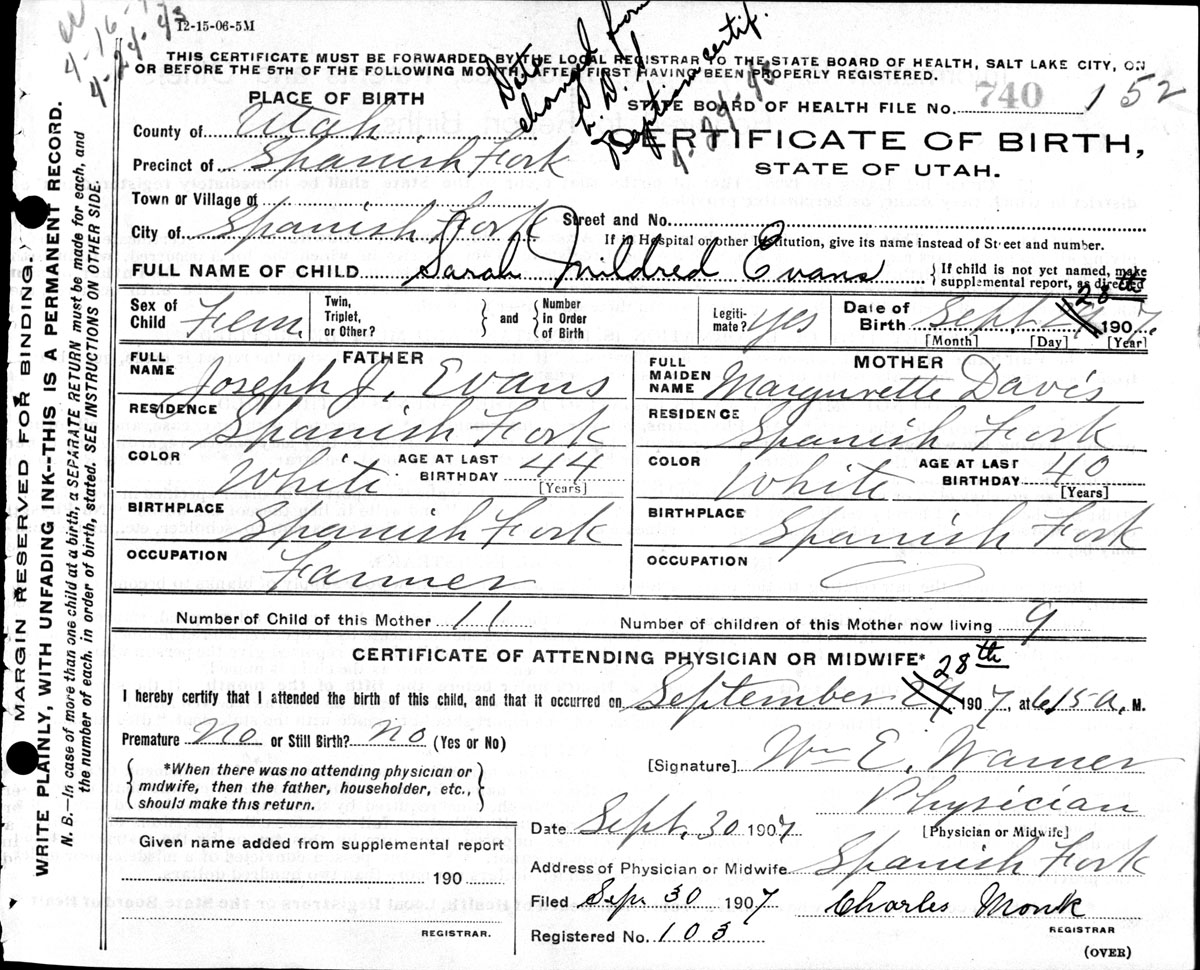 12-15-06-5M
4-24-43
THIS CERTIFICATE MUST BE FORWARDED BY THE LOCAL REGISTRAR TO THE STATE BOARD OF HEALTH, SALT LAKE CITY, ON
OR BEFORE THE 5TH OF THE FOLLOWING MONTH, AFTER FIRST HAVING BEEN PROPERLY REGISTERED.
Date
changed from
L.D.S.
baptism certif.
PLACE OF BIRTH
STATE BOARD OF HEALTH FILE No. 740 152
County of Utah
CERTIFICATE OF BIRTH,
Precinct of Spanish Fork
STATE OF UTAH.
Town or Village of
City of Spanish Fork
Street and No.
If in Hospital or other Institution, give its name instead of Street and number.
FULL NAME OF CHILD Sarah Mildred Evans
{If child is not yet named, make
supplemental report, as directed
Sex of Child Fem.
Twin, Triplet, or Other?
and
Number in Order of Birth
Legitimate? yes
Date of Birth Sept. 28th 1907.
[Month] [Day] [Year]
FATHER
FULL NAME Joseph J. Evans
RESIDENCE Spanish Fork
COLOR White AGE AT LAST BIRTHDAY 44
[Years]
BIRTHPLACE Spanish Fork
OCCUPATION Farmer
MOTHER
FULL MAIDEN NAME Margurette Davis
RESIDENCE Spanish Fork
COLOR White AGE AT LAST BIRTHDAY 40
[Years]
BIRTHPLACE Spanish Fork
OCCUPATION
Number of Child of this Mother 11
Number of children of this Mother now living 9
CERTIFICATE OF ATTENDING PHYSICIAN OR MIDWIFE*
I hereby certify that I attended the birth of this child, and that it occurred on September 28th 1907 at 6.15 a. M.
Premature No or Still Birth? No (Yes or No)
*When there was no attending physician or
midwife, then the father, householder, etc.,
should make this return.
[Signature] Wm E. Warner
Physician
[Physician or Midwife]
Date Sept. 30 1907
Address of Physician or Midwife Spanish Fork
Filed Sept 30 1907
Charles Monk
REGISTRAR
Registered No. 103
(OVER)
Given name added from supplemental report
190
REGISTRAR.
MARGIN RESERVED FOR BINDING
WRITE PLAINLY, WITH UNFADING INK--THIS IS A PERMANENT RECORD.
N. B.—In case of more than one child at a birth, a SEPARATE RETURN must be made for each, and
the number of each, in order of birth, stated. SEE INSTRUCTIONS ON OTHER SIDE.